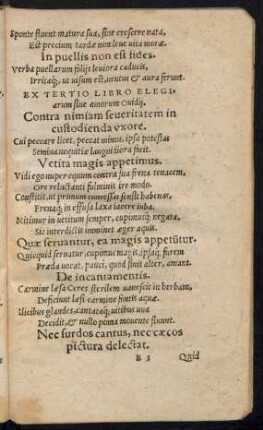 Sponte fluent matura suæ, sine crescere nata,
Est precium tardæ non leue vita moræ.
In puellis non est fides.
Verba puellarum folijs leuiora caducis,
Irritaq́;, ut uisum est, uentus & aura ferunt.
EX TERTIO LIBRO ELEGI-
arum siue amorum Ouidij.
Contra nimiam seueritatem in
custodienda vxore.
Cui peccare licet, peccat minus, ipsa potestas
Semina nequitiæ languidiora facit.
Vetita magis appetimus.
Vidi ego nuper equum contra sua frena tenacem,
Ore reluctanti fulminis ire modo.
Constitit, ut primum concessas sensit habenas,
Frenaq́; in effusa laxa iacere iuba.
Nitimur in uetitum semper, cupimusq́; negata,
Sic interdictis imminet æger aquis.
Quæ seruantur, ea magis appetūtur.
Quicquid seruatur, cupimus magis, ipsaq́; furem
Præda uocat, pauci, quod sinit alter, amant.
De incantamentis.
Carmine læsa Ceres sterilem uanescit in herbam,
Deficiunt læsi carmine fontis aquæ.
Ilicibus glandes, cantataq́; uitibus uua
Decidit, & nullo poma mouente fluunt.
Nec surdos cantus, nec cæcos
pictura delectat.
B 3 Quid